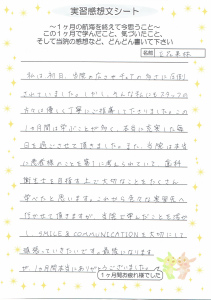 実習感想文シート
～1ヶ月の航海を終えて今思うこと～
この1ヶ月で学んだこと、気づいたこと、
そして当院の感想など、どんどん書いて下さい
名前
私は初日、当院の
されていました。しかし、みんな私にもスタッフの
方々は優しく丁寧にご指導して下さりました。この
1ヶ月間は学ぶことが多く、本当に充実した毎
日を過ごさせて頂きました。また、当院は本当
に患者様のことを第1に考えられていて、歯科
衛生士を目指す上で大切なことをたくさん
学べたと思います。これから色々な実習先へ
行かせて頂きますが、当院で学んだことを活か
し、SMILE & COMMUNICATIONを大切にして
頑張っていきたいです。最後になります
が、1ヶ月間本当にありがとうございました。
1ヶ月間お疲れ様でした